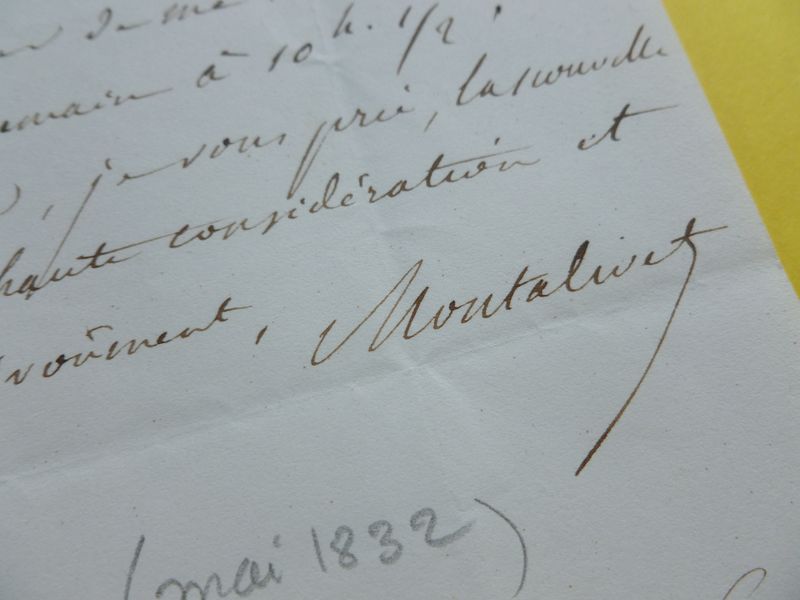 de me
demain à 10 h. 1/2.
, je vous prie, la nouvelle
haute considération et
voûment, Montalivet
(mai 1832)